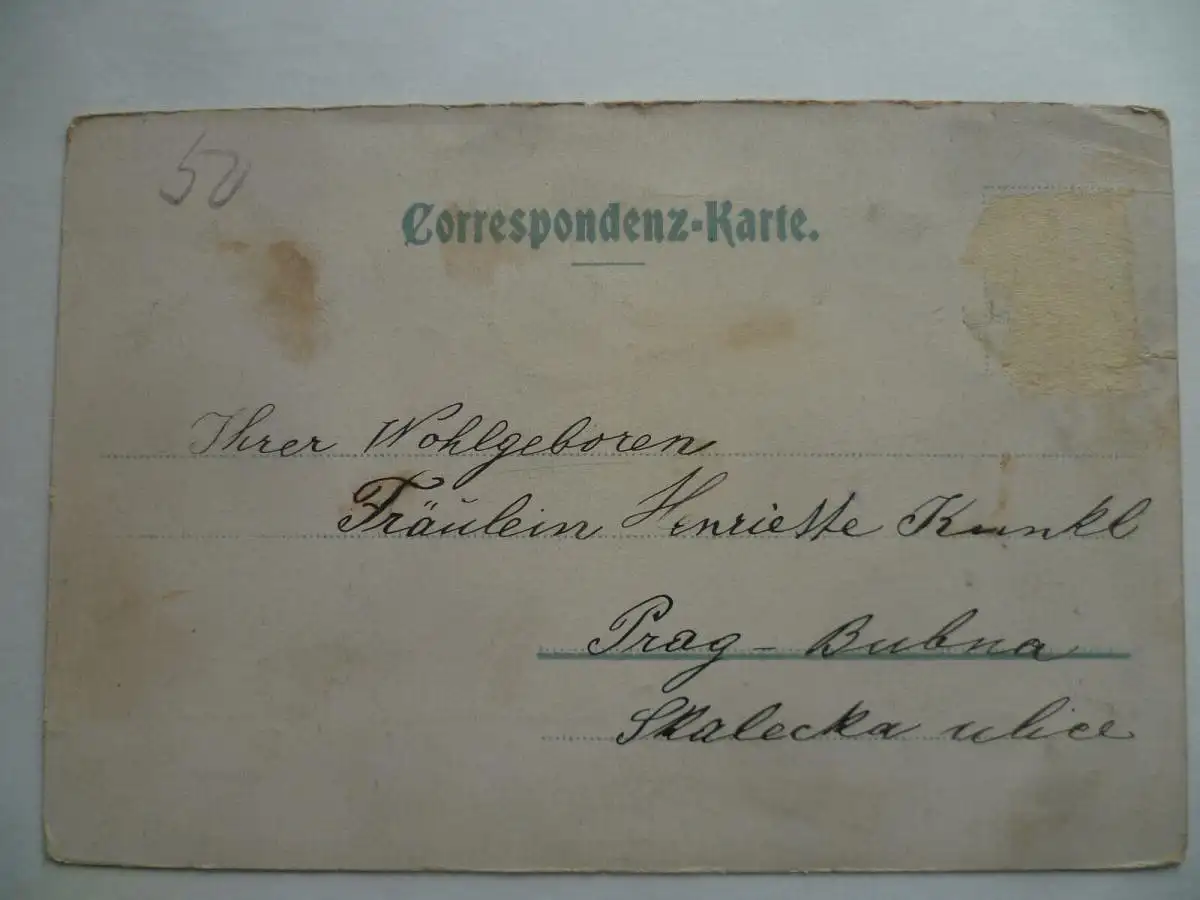 50
Correspondenz-Karte.
Ihrer Wohlgeboren
Fräulein Henriette Kunkl
Prag - Bubna
Skalecka ulice